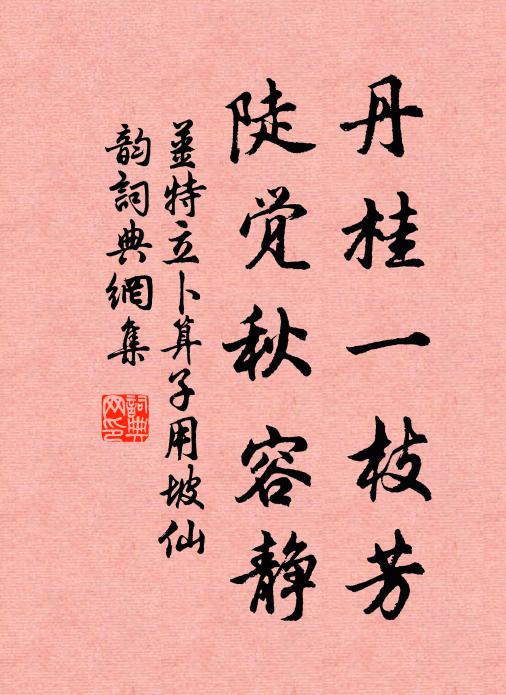 丹桂一枝芳
陡觉秋容静
姜特立卜算子用坡仙
韵詞典網集
詞典网印